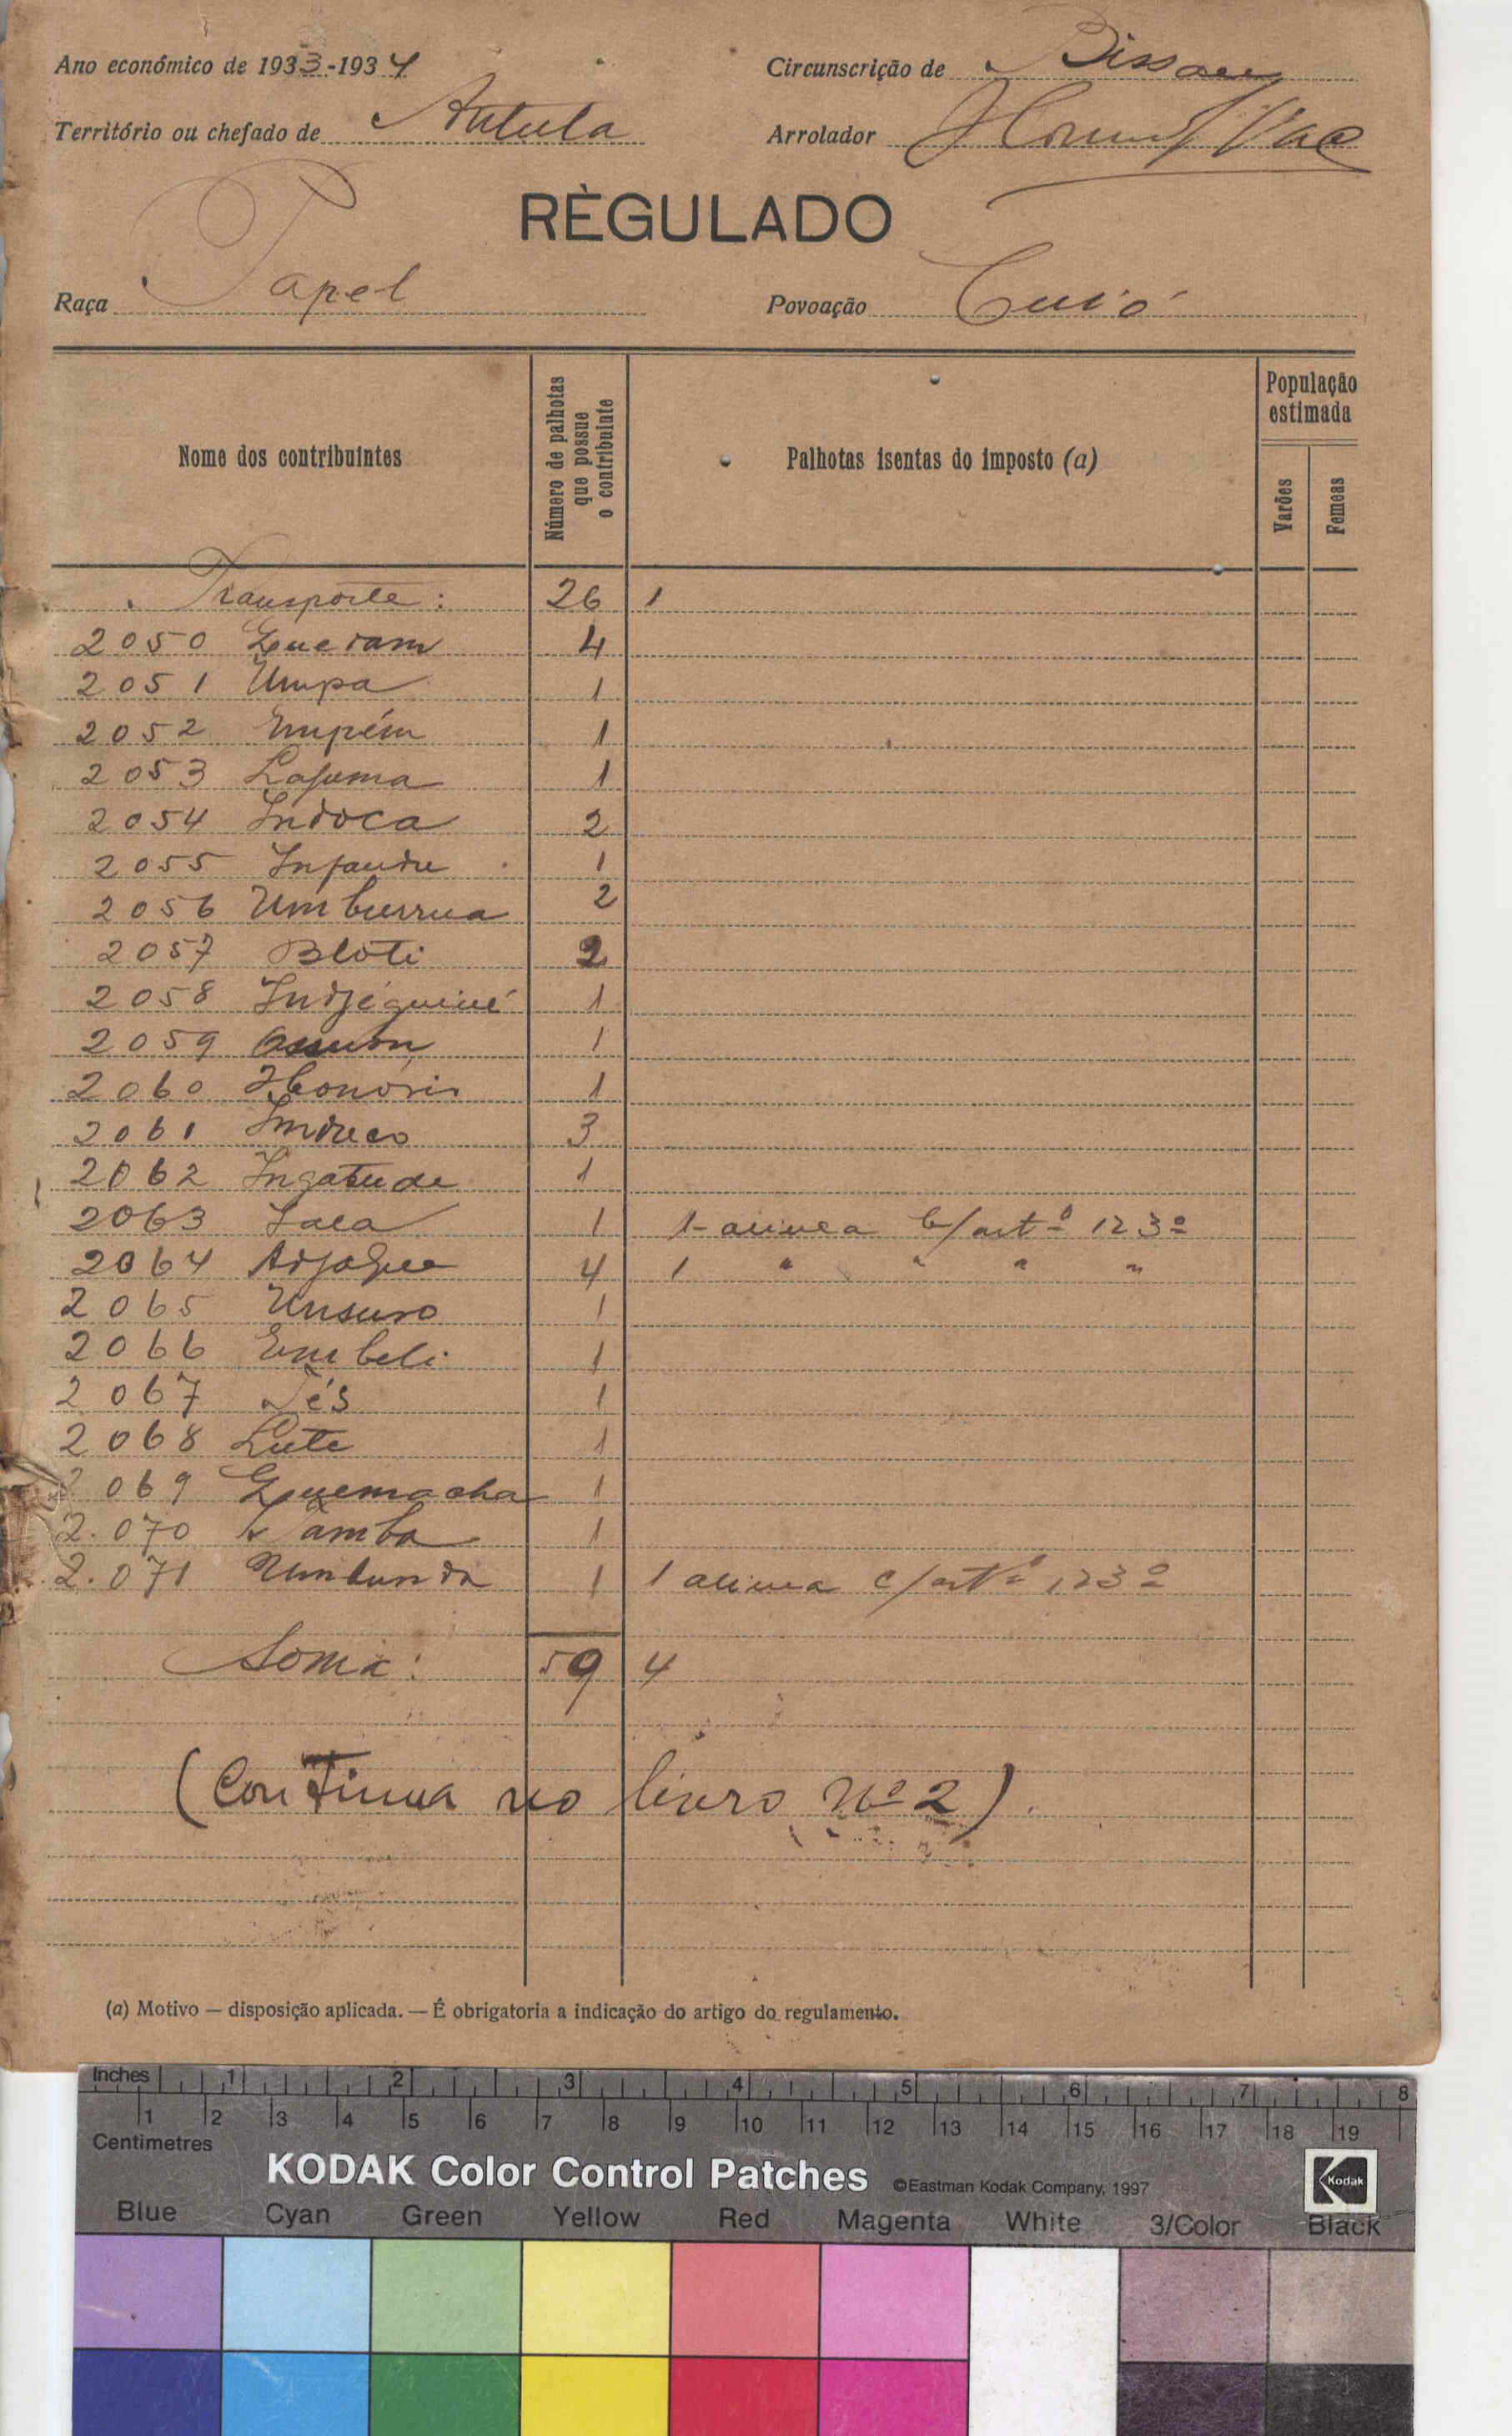 Ano económico de 1933-1934
Circunscrição de Bissau
Território ou chefado de Antula
Arrolador
RÈGULADO
Raça Papel
Povoação Cuió
Nome dos contribuintes
Número de palhotas que possue o contribuinte
Palhotas isentas do imposto (a)
População estimada
Varões
Femeas
Transporte: 26 1
2050 Queram 4
2051 Umpa 1
2052 Empém 1
2053 Lafuma 1
2054 Indoca 2
2055 Infandu 1
2056 Umburrua 2
2057 Bloti 2
2058 Indjéguiné 1
2059 1
2060 Honório 1
2061 Induco 3
2062 Ingatude 1
2063 Iala 1 1- alinea b/artº 123º
2064 4 1 " " " "
2065 Unsuro 1
2066 Embeli 1
2067 Tés 1
2068 Lute 1
2069 Quemacha 1
2.070 Tamba 1
2.071 Umbunda 1 1 alinea c/artº 123º
Soma: 59 4
(Continua no livro Nº 2).
(a) Motivo — disposição aplicada. — É obrigatoria a indicação do artigo do regulamento.
Inches 1 2 3 4 5 6 7 8
1 2 3 4 5 6 7 8 9 10 11 12 13 14 15 16 17 18 19
Centimetres
KODAK Color Control Patches ©Eastman Kodak Company, 1997 Kodak
Blue Cyan Green Yellow Red Magenta White 3/Color Black